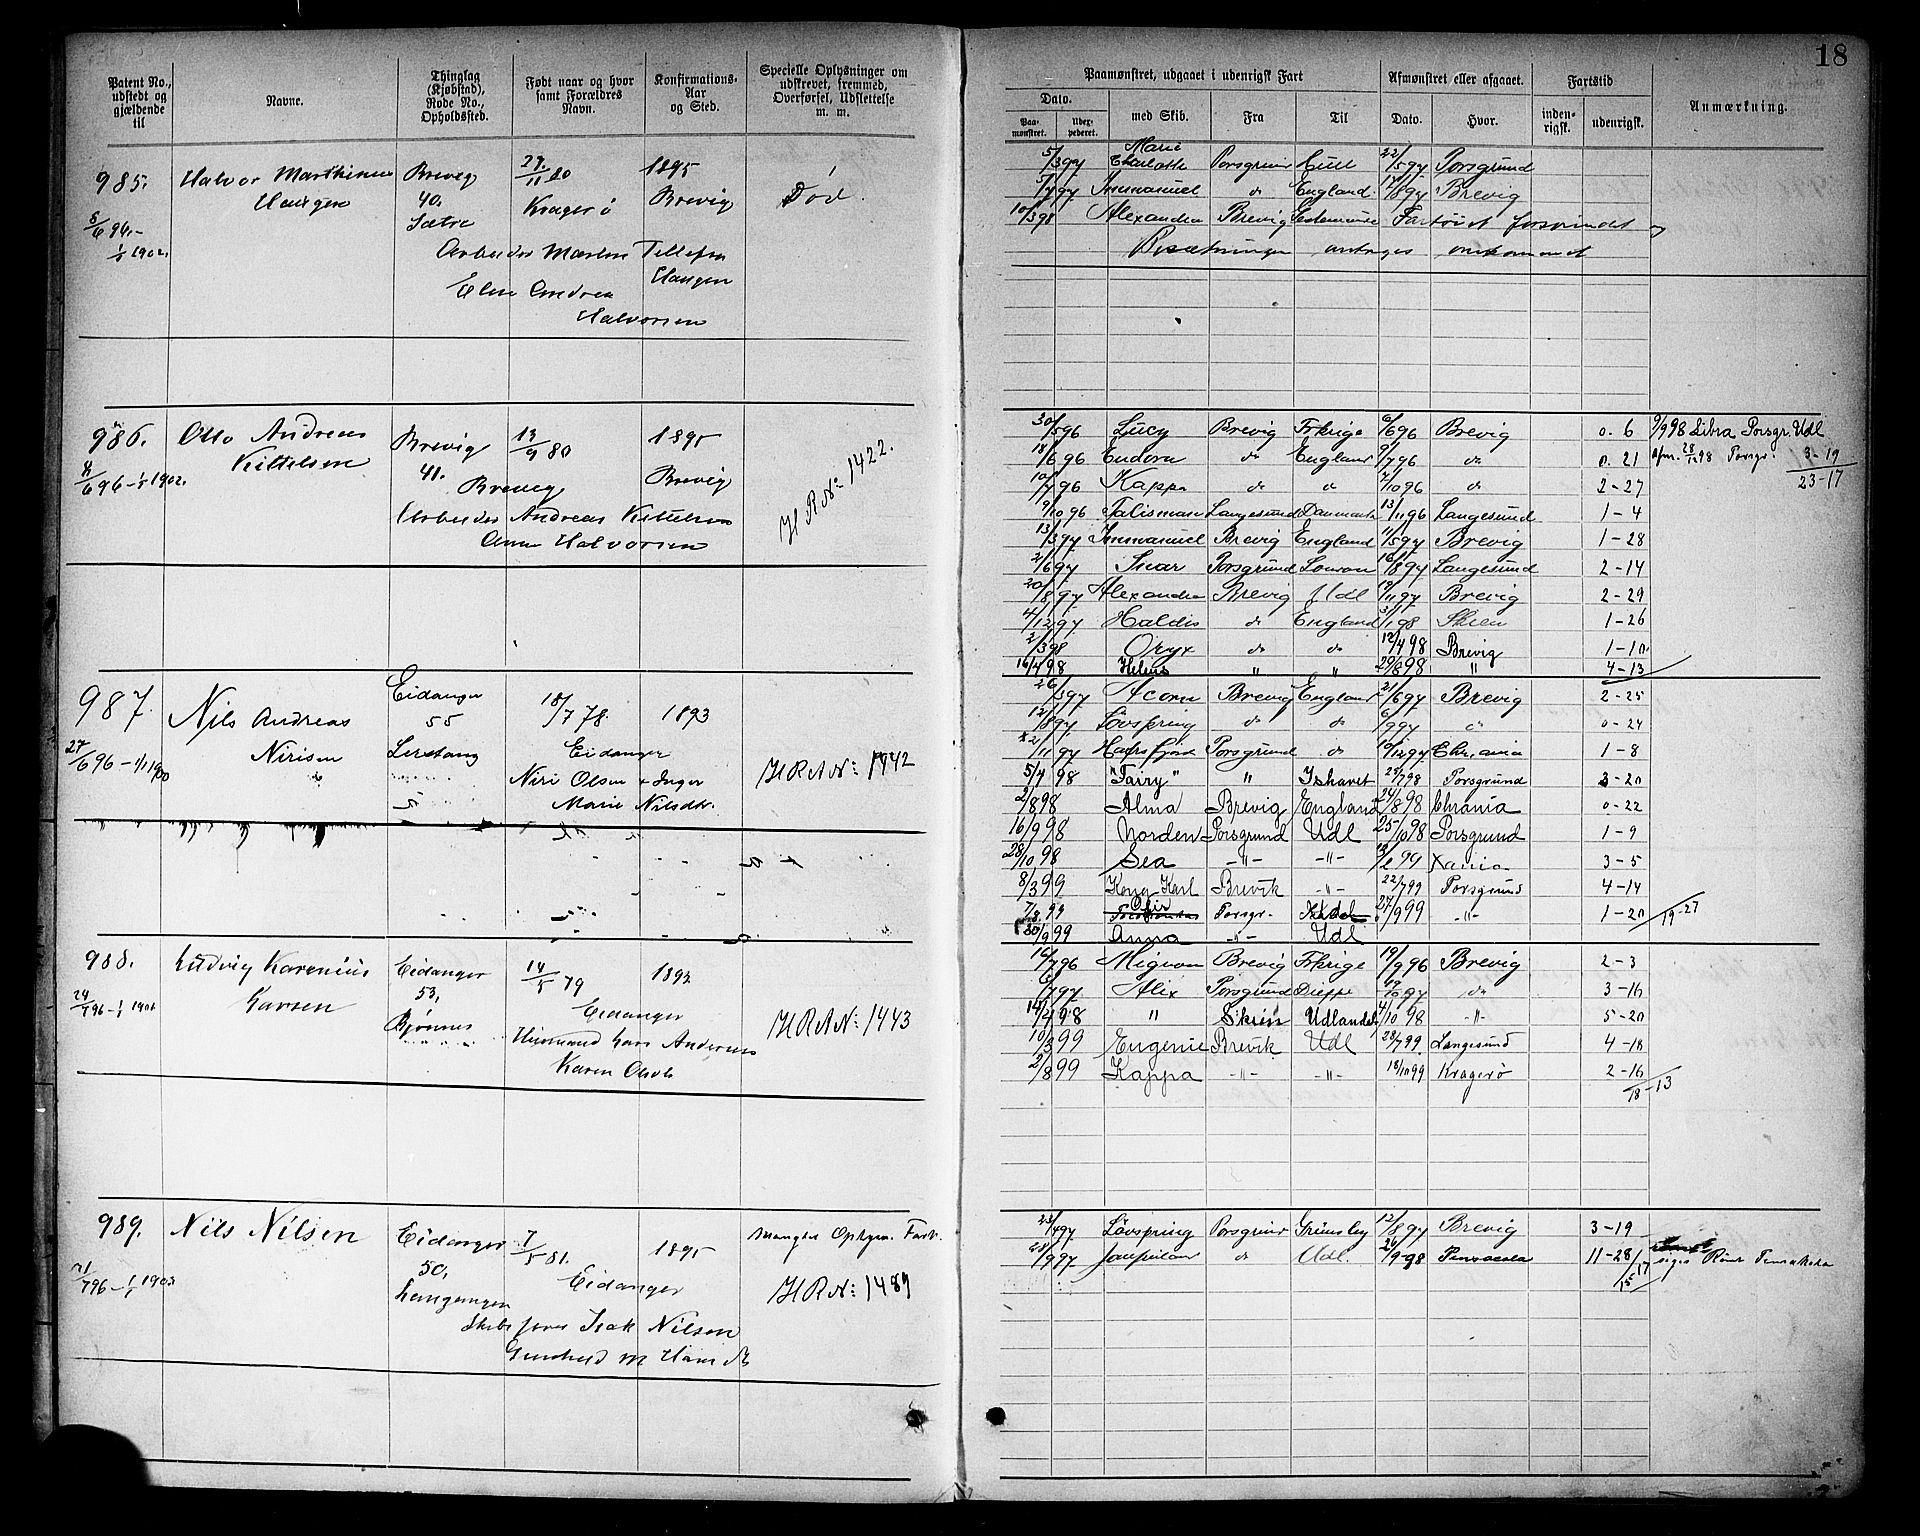 18
Patent No., udstedt og gjældende til | Navne. | Thinglag (Kjøbstad), Rode No., Opholdssted. | Født naar og hvor samt Forældres Navn. | Konfirmations-Aar og Sted. | Specielle Oplysninger om udskrevet, fremmed, Overførsel, Udslettelse m. m.
Paamønstret, udgaaet i udenrigsk Fart | Afmønstret eller afgaaet. | Fartstid | Anmærkning.
Dato. | med Skib. | Fra | Til | Dato. | Hvor. | inden-rigsk. | udenrigsk.
Paa-mønstret. | Udex-pederet.
985. Halvor Marthinius Brevig 29/11 80 1895 Død.
Haugen 40. Kragerø Brevig
5/6 96.- Sætre
1/1 1902. Arbeider Marten Tellefsen
Haugen
Elen Andrea
Halvorsen
5/3 97 Marie Charlotte Porsgrund Hull 22/5 97 Porsgrund
5/7 97 Immanuel do England 14/8 97 Brevig
10/3 98 Alexandra Brevig Fartøiet forsvundet og
Besætningen antages omkommet
986. Otto Andreas Brevig 13/9 80 1895 H R No: 1422.
Kittelsen 41. Brevig
6 96-1/1 1902. Brevig
Arbeider Andreas Kittelsen
Anne Halvorsen
30/5 96 Lucy Brevig Frkrige 6/6 96 Brevig 0. 6 9/9 98 Libra Porsgr. Udl
18/6 96 Eudora do England 9/7 96 do 0. 21 afm. 28/12 98 Porsgr. 3-19
10/7 96 Kappa do do 7/10 96 do 2-27 23-17
9/10 96 Talisman Langesund Danmark 13/11 96 Langesund 1-4
13/3 97 Immanuel Brevig England 11/5 97 Brevig 1-28
2/6 97 Svar Porsgrund 16/8 97 Langesund 2-14
20/8 97 Alexandra Brevig Udl 19/11 97 Brevig 2-29
4/12 97 Haldis do England 3/1 98 Skien 1-26
2/3 98 Oryx do do 12/4 98 Brevig 1-10
16/4 98 Helene " " 29/8 98 " 4-13
987. Nils Andreas Eidanger 18/7 78. 1893 H R A No: 1442
Nirisen 55 Eidanger
27/6 96-1/1 1900 Lerstang Niri Olsen & Inger
Marie Nilsdtr.
26/3 97 Acorn Brevig England 21/6 97 Brevig 2-25
12/8 97 Løvspring do do 6/9 97 do 0-24
2/11 97 Hafrsfjord Porsgrund do 10/12 97 Chr.ania 1-8
5/4 98 "Fairy" " Ishavet 25/7 98 Porsgrund 3-20
2/8 98 Alma Brevig England 24/8 98 Chrania 0-22
16/9 98 Norden Porsgrund Udl 25/10 98 Porsgrund 1-9
28/10 98 Sea -"- -"- 13/2 99 Xania 3-5
8/3 99 Kong Karl Brevik -"- 22/7 99 Porsgrund 4-14
7/8 99 Porsgr. 27/9 99 -"- 1-20 19-27
30/9 99 Anna -"- Udl.
988. Ludvig Karenius Eidanger 14/5 79 1893 H R A No: 1443
Larsen 53, Eidanger
24/7 96-1/1 Bjønnes Huusmand Lars Andersen
Karen Olsdt.
16/7 96 Mignon Brevig Frkrige 19/9 96 Brevig 2-3
6/7 97 Alix Porsgrund Dieppe 10 97 do 3-16
14/4 98 " Skien Udlandet 4/10 98 -"- 5-20
10/3 99 Eugenie Brevik Udl 28/7 99. Langesund 4-18
2/8 99 Kappa -"- -"- 18/10 99 Kragerø 2-16
18-13
989. Nils Nilsen Eidanger 7/5 81. 1895 mangler Opgave Fart.
50, Eidanger H R No: 1489
7 96-1/1 1903 Langangen
Skibsfører Isak Nilsen
Gunhild M Hansdtr
23/4 97 Løvspring Porsgrund Grimsby 12/8 97 Brevig 3-19
28/9 97 do Udl. 26/9-98 Pensacola 11-28 siges Rømt Pensakola
15/17